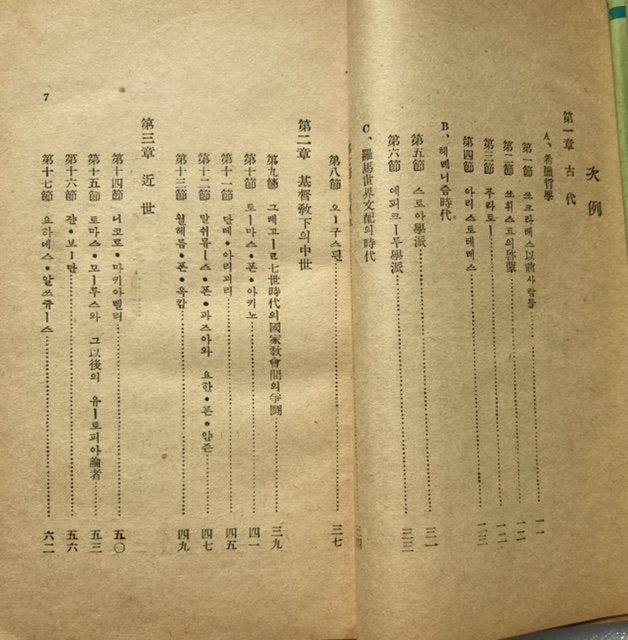 次例
第一章 古代
A、希臘哲學
第一節 쏘크라테스以前사람들……一一
第二節 쏘휘스트의啓蒙……一二
第三節 푸라토ー……一二
第四節 아리스토테레스……一三
B、헤레니즘時代
第五節 스토아學派……二一
第六節 에피크ー루學派……二三
C、羅馬世界支配의時代
第八節 오ー구스틴……三七
第二章 基督敎下의中世
第九節 그레고ーㄹ七世時代의國家敎會間의爭鬪……三九
第十節 토ー마스•폰•아키노……四一
第十一節 단떼•아리괴리……四五
第十二節 말쉬류ー스•폰•파즈아와 요한•폰•얀즌……四七
第十三節 윌헤름•폰•옥캄……四九
第三章 近世
第十四節 니코로•마키아벨리……五〇
第十五節 토마스•모ー루스와 그以後의 유ー토피아論者……五三
第十六節 쟌•보ー단……五六
第十七節 요하네스•알쓰쥬ー스……六二
7